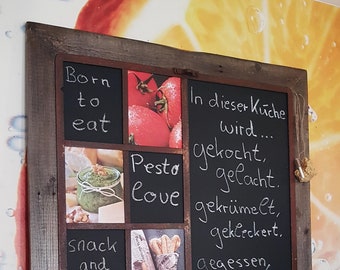 Born
to
eat
Pesto
love
snack
and
In dieser Küche
wird...
gekocht,
gelacht.
gekrümelt,
gekleckert.
gegessen,